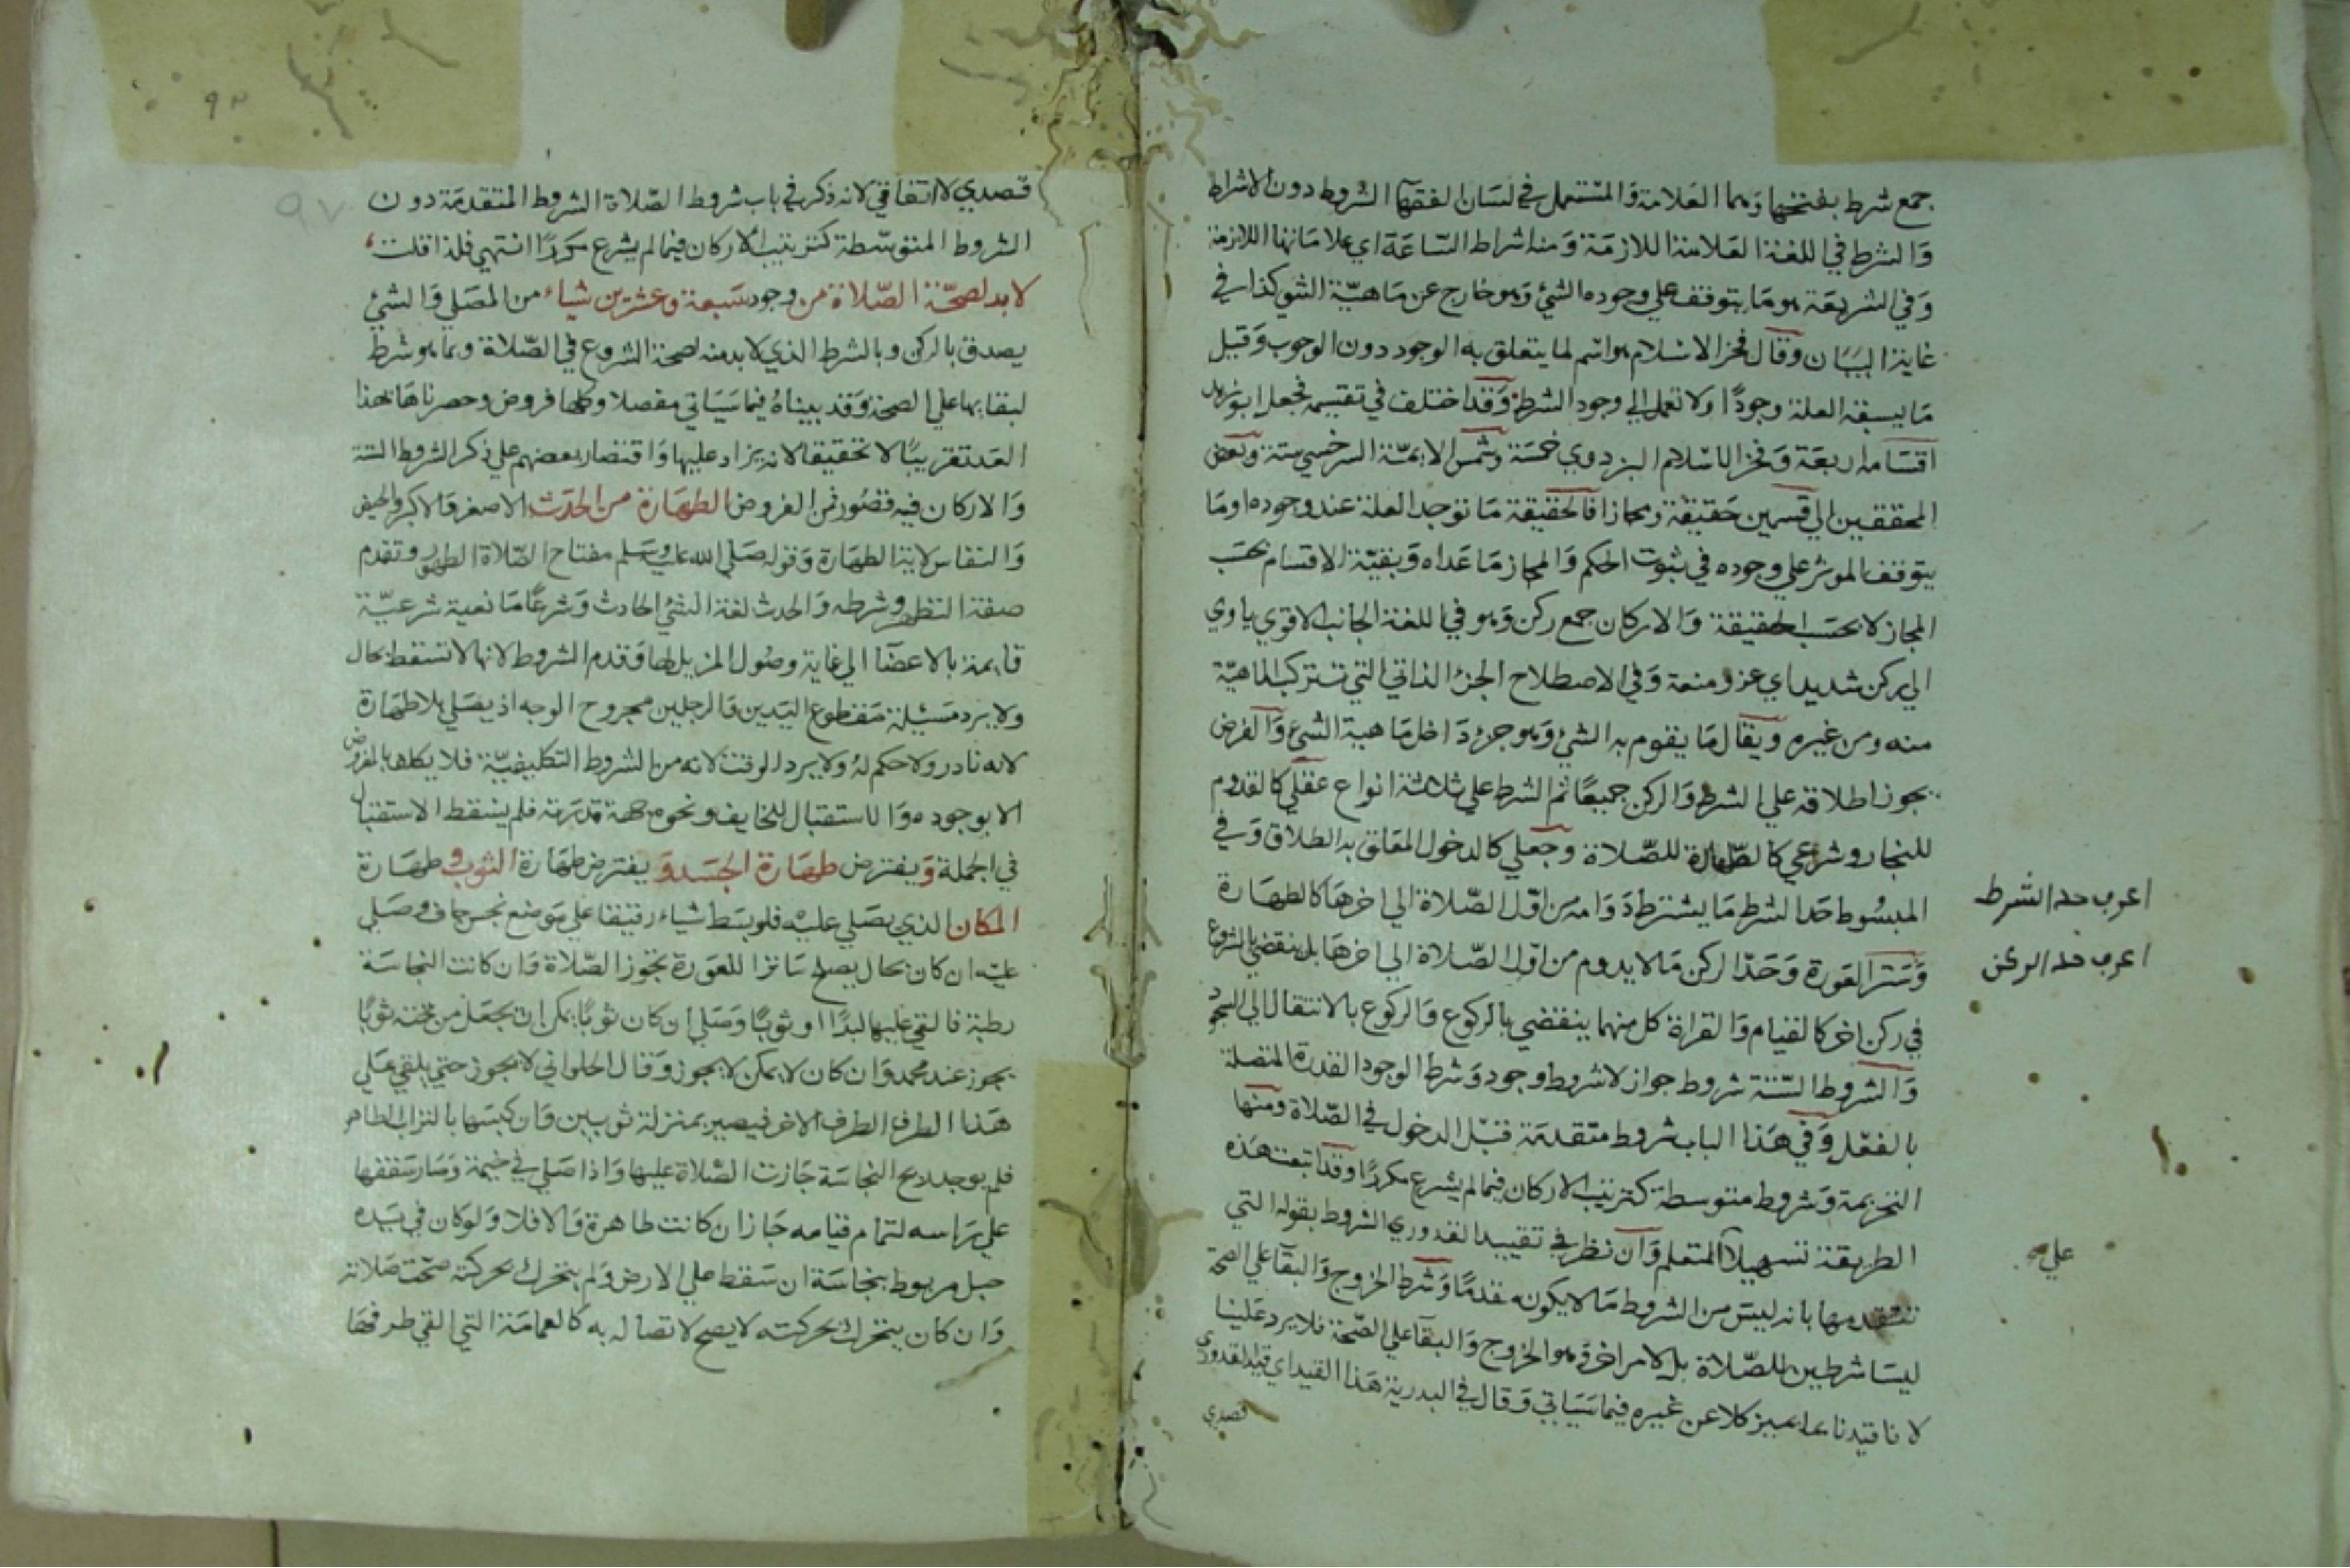 جمع شرط بفتحها وهما العلامة والمستعمل في لسان الفقهآ الشروط دون الاشراط
والشرط في اللغة العلامة اللازمة ومنه اشراط الساعة اي علاماتها اللازمة
وفي الشريعة هو ما يتوقف على وجوده الشئ وهو خارج عن ماهية الشئ كذا في
غاية البيان وقال فخر الاسلام هو اسم لما يتعلق به الوجود دون الوجوب وقيل
ما يسبقه العلة وجودًا ولا تعمل الي وجود الشرط وقد اختلف في تقسيمه فجعل ابو زيد
اقسامه اربعة وفخر الاسلام البزدوي خمسة وشمس الايمّة السرخسي ستة وبعض
المحققين الي قسمين حقيقة ومجازا فالحقيقة ما توجد العلة عند وجوده او ما
يتوقف الموثر علي وجوده في ثبوت الحكم والمجاز ما عداه وبقيّة الاقسام بحسب
المجاز لا بحسب الحقيقة والاركان جمع ركن وهو في اللغة الجانب الاقوي ياوي
الي ركن شديد اي عز ومنعة وفي الاصطلاح الجزء الذاتي التي تتركب الماهيّة
منه ومن غيره ويقال ما يقوم به الشئ وهو جزء داخل ماهية الشئ والفرض
يجوز اطلاقه علي الشرط والركن جميعًا ثم الشرط علي ثلاثة انواع عقلي كالقدوم
للنجار وشرعي كالطهارة للصّلاة وجعلي كالدخول المعلق به الطلاق وفي
المبسوط حد الشرط ما يشترط دوامه من اوّل الصّلاة الي اخرها كالطهارة
اعرف حد الشرط
وستر العورة وحدّ الركن ما لا يدوم من اول الصّلاة الي اخرها بل ينقضي بالشروع
اعرف حد الركن
في ركن اخر كالقيام والقراة كل منهما ينقضي بالركوع والركوع بالانتقال الي السجود
والشروط الستة شروط جواز لا شروط وجود وشرط الوجود القدرة المتصلة
بالفعل وفي هذا الباب شروط متقدمة قبل الدخول في الصّلاة ومنها
التحريمة وشروط متوسطة كترتيب الاركان فيما لم يشرع مكررًا وقد اتبعت هذه
الطريقة تسهيلا للمتعلم وان نظر في تقييد القدوري الشروط بقوله التي
تتقدمها بانه ليس من الشروط ما لا يكون مقدمًا وشرط الخروج والبقآ علي الصحة
ليسا شرطين للصّلاة بل لامر اخر وهو الخروج والبقآ علي الصّحة فلا يرد علينا
لانا قيدنا بما يميز كلا عن غيره فيما سياتي وقال في البدرية هذا القيد اي قيد القدوري
قصدي
٩٧
قصدي لا اتفاقي لانه ذكر في باب شروط الصّلاة الشروط المتقدمة دون
الشروط المتوسّطة كترتيب الاركان فيما لم يشرع مكررًا انتهي فلذا قلت
لا بد لصحّة الصّلاة من وجود سبعة وعشرين شياء من المصلي والشئ
يصدق بالركن وبالشرط الذي لا بد منه لصحة الشروع في الصّلاة وبما هو شرط
لبقايها علي الصحة وقد بيناه فيما سياتي مفصلا وكلها فروض وحصرناها بهذا
العدد تقريبًا لا تحقيقا لانه يزاد عليها واقتصار بعضهم علي ذكر الشروط الستة
والاركان فيه قصور فمن الفروض الطهارة من الحدث الاصغر والاكبر والحيض
والنفاس لاية الطهارة وقوله صلي الله عليه وسلم مفتاح الصّلاة الطهور وتقدم
صفة التطهر وشرطه والحدث لغة الشئ الحادث وشرعًا مانعية شرعيّة
قايمة بالاعضآ الي غاية وصول المزيل لها وقدم الشروط لانها لا تسقط بحال
ولا يرد مسئلة مقطوع اليدين والرجلين مجروح الوجه اذ يصلي بلا طهارة
لانه نادر ولا حكم له ولا يرد الوقت لانه من الشروط التكليفيّة فلا يكلف بالفروض
الا بوجوده والاستقبال للخايف ونحوه جهة قدرته فلم يسقط الاستقبال
في الجملة ويفترض طهارة الجسد ويفترض طهارة الثوب و طهارة
المكان الذي يصلي عليه فلو بسط شياء رقيقا علي موضع نجس جاف وصلي
عليه ان كان بحال يصلح ساترا للعورة تجوز الصّلاة وان كانت النجاسة
رطبة فالقي عليها لبدًا او ثوبًا وصلي ان كان ثوبًا يمكن ان يجعل من تخنه ثوبًا
يجوز عند محمد وان كان لا يمكن لا يجوز وقال الحلواني لا يجوز حتي يلقي علي
هذا الطرف الطرف الاخر فيصير بمنزلة ثوبين وان كبسها بالتراب الطاهر
فلم يوجد ريح النجاسة جازت الصّلاة عليها واذا صلي في خيمة وصار سقفها
علي راسه لتمام قيامه جاز ان كانت طاهرة والا فلا ولو كان في يده
حبل مربوط بنجاسة ان سقط علي الارض ولم يتحرك بحركته صحت صلاته
وان كان يتحرك بحركته لا يصح لاتصاله به كالعمامة التي القي طرفها